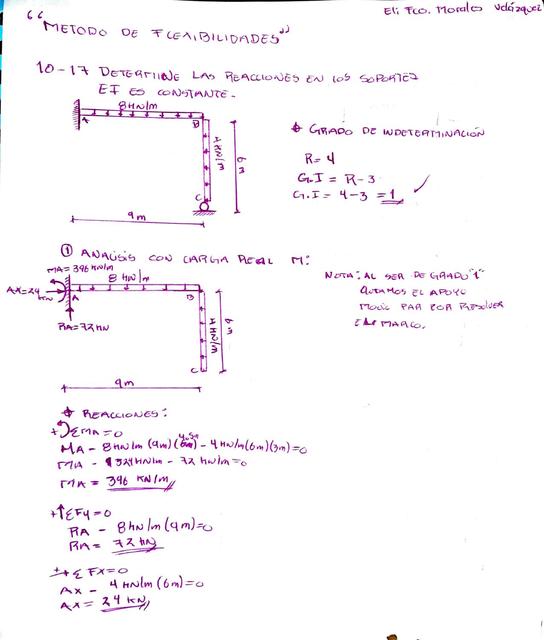 Eli Fco. Morales Velázquez
"METODO DE FLEXIBILIDADES"
10-17 DETERMINE LAS REACCIONES EN LOS SOPORTEZ
EI ES CONSTANTE.
8KN/m
A
B
4KN/m
6m
C
9m
GRADO DE INDETERMINACIÓN
R=4
G.I = R-3
G.I = 4-3 = 1
① ANALISIS CON CARGA REAL M:
MA=396 KN/m
8 KN/m
AX=24
KN
A
B
RA=72KN
4 KN/m
6m
C
9m
NOTA: AL SER DE GRADO "1"
QUITAMOS EL APOYO
MOVIL PAR POR RESOLVER
EL MARCO.
REACCIONES:
+ΣMA=0
MA - 8KN/m (9m)(4.5m) - 4KN/m(6m)(3m)=0
MA - 324KN/m - 72 KN/m=0
MA = 396 KN/m
+↑ΣFy=0
RA - 8KN/m (9m)=0
RA = 72 KN
+→ΣFX=0
AX - 4KN/m (6m)=0
AX = 24 KN